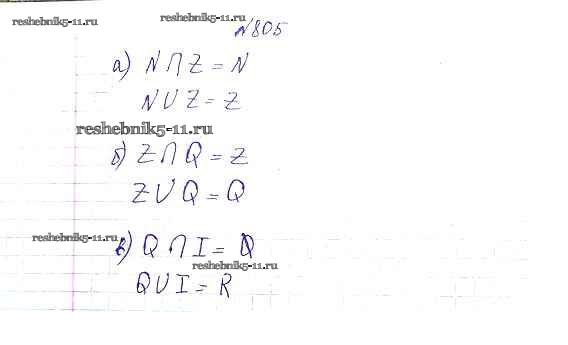 reshebnik5-11.ru
reshebnik5-11.ru
N805
а) N∩Z = N
N∪Z = Z
reshebnik5-11.ru
б) Z∩Q = Z
Z∪Q = Q
reshebnik5-11.ru
в) Q∩I = Q
reshebnik5-11.ru
Q∪I = R